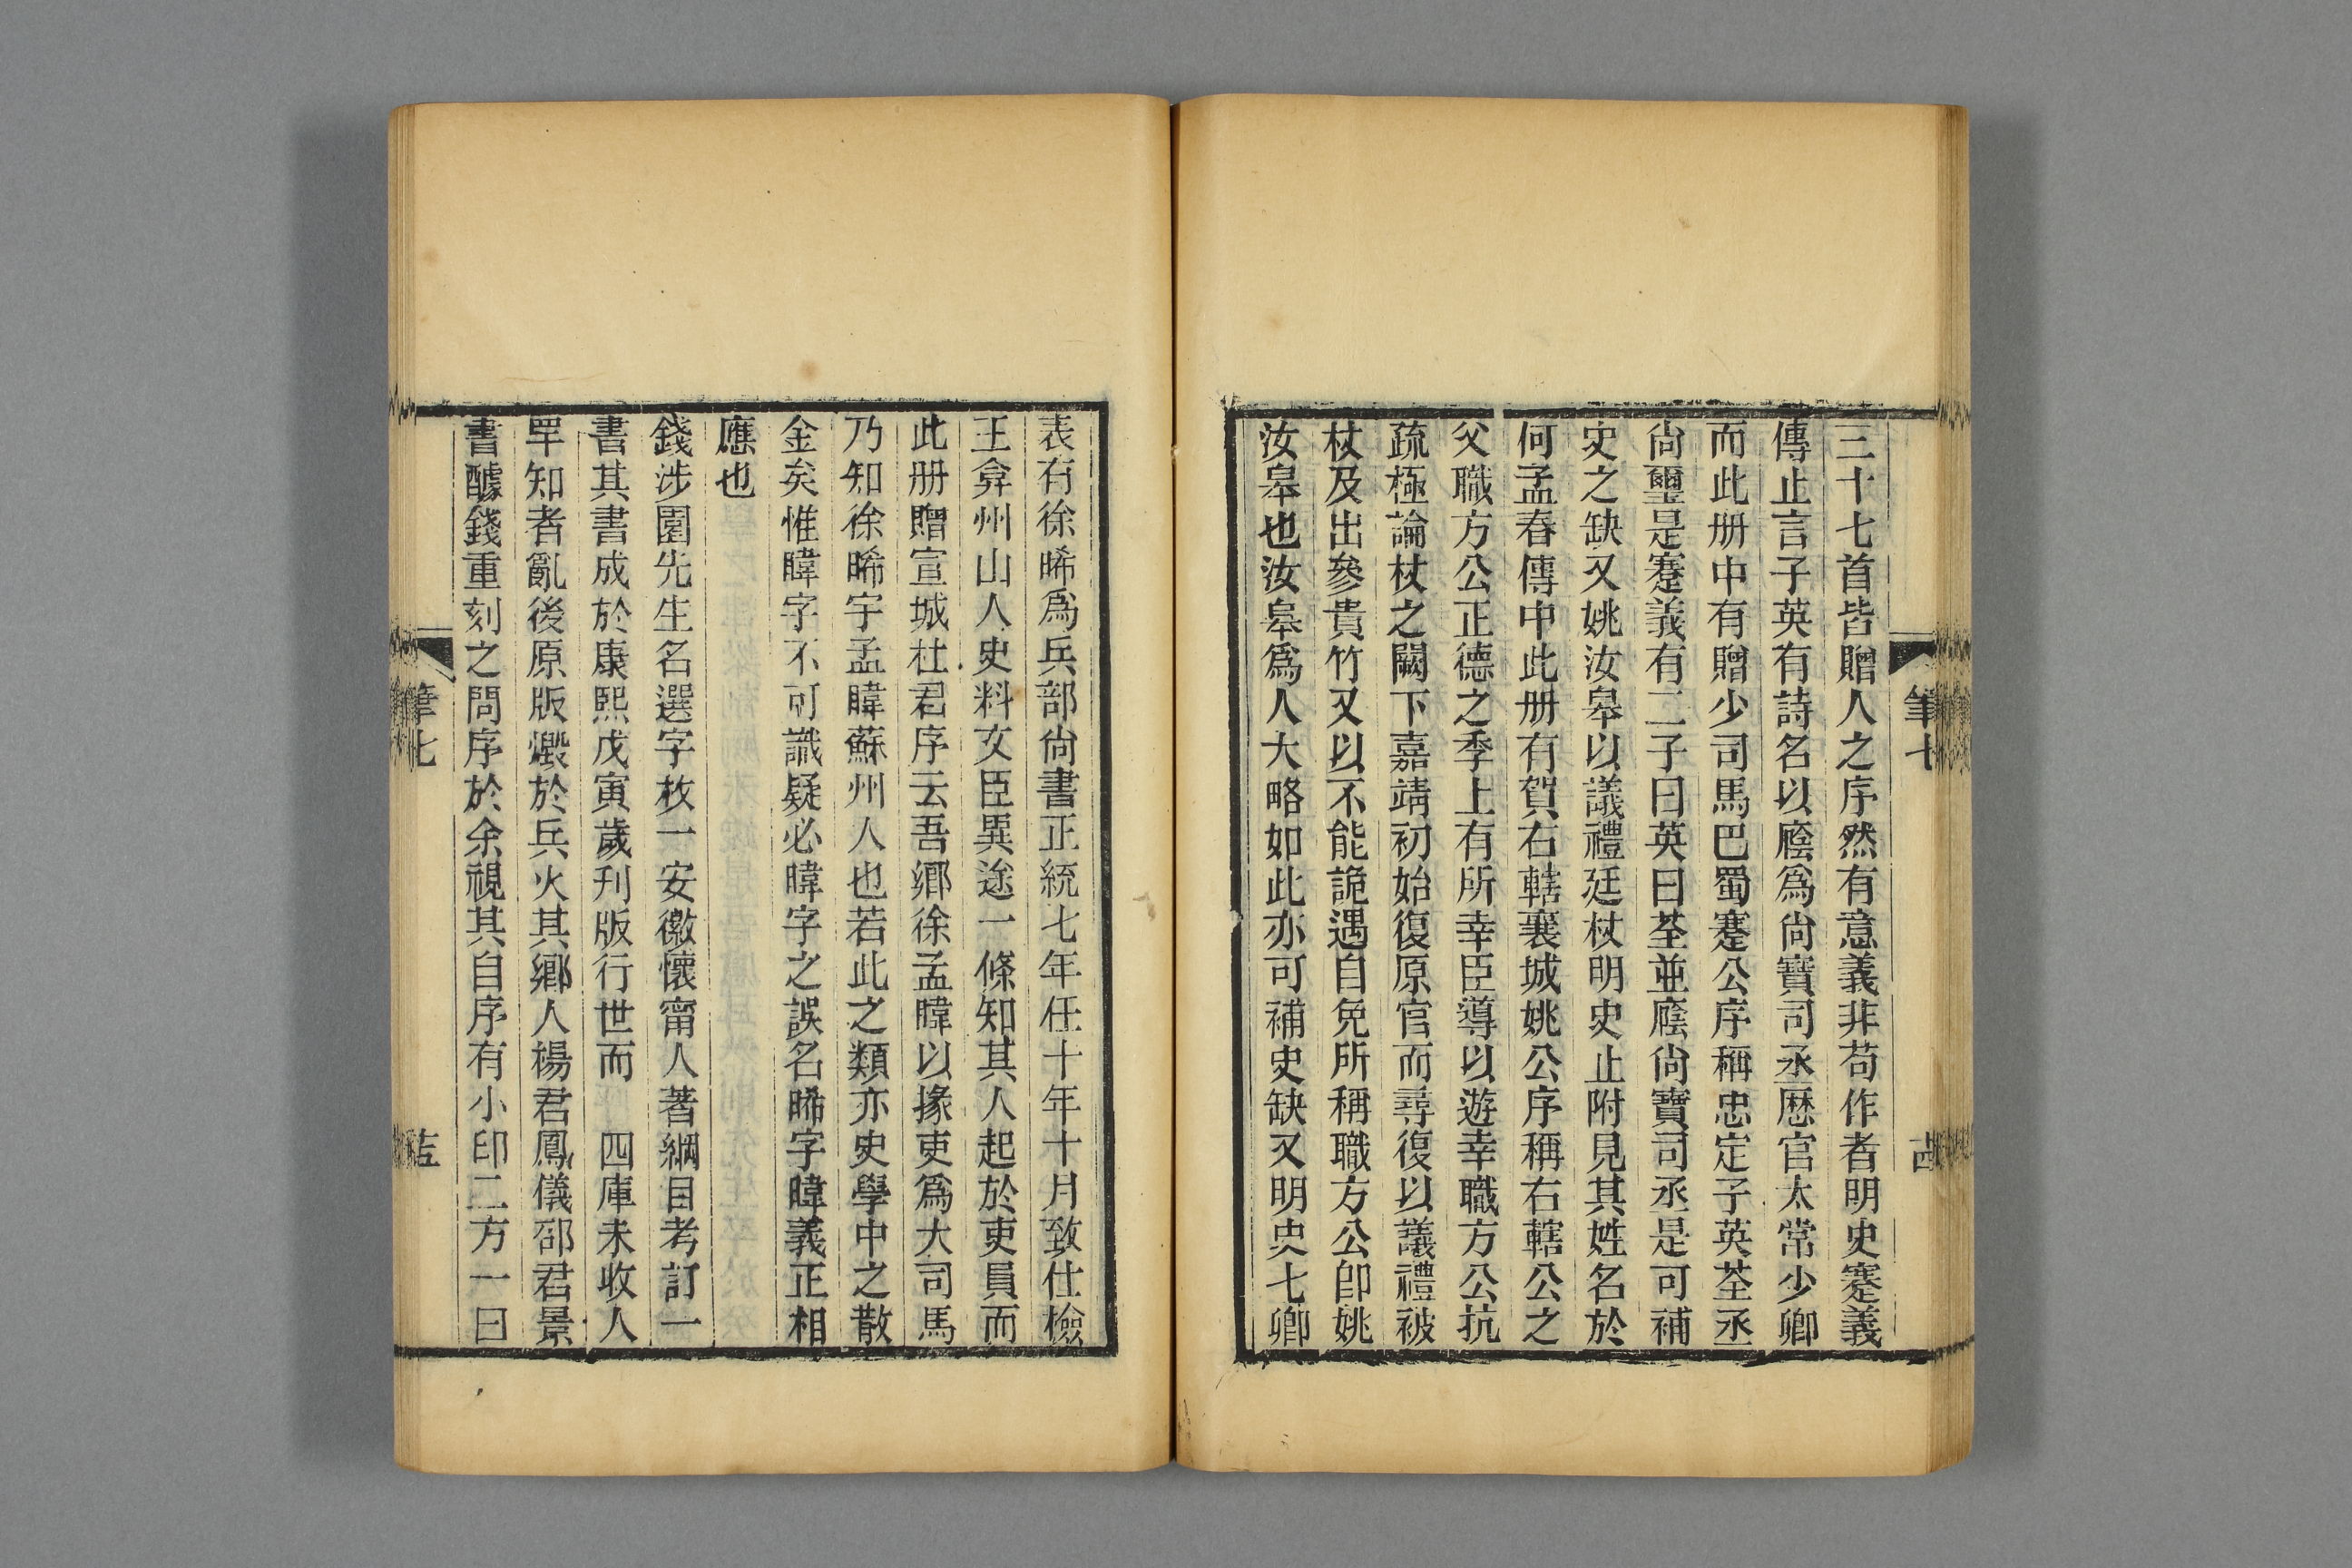 三十七首皆贈人之序然有意義非苟作者明史蹇義
傳止言子英有詩名以廕爲尙寶司丞歷官太常少卿
而此册中有贈少司馬巴蜀蹇公序稱忠定子英荃丞
尙璽是蹇義有二子曰英曰荃並廕尙寶司丞是可補
史之缺又姚汝皋以議禮廷杖明史止附見其姓名於
何孟春傳中此册有賀右轄襄城姚公序稱右轄公之
父職方公正德之季上有所幸臣導以遊幸職方公抗
疏極論杖之闕下嘉靖初始復原官而尋復以議禮被
杖及出參貴竹又以不能詭遇自免所稱職方公卽姚
汝皋也汝皋爲人大略如此亦可補史缺又明史七卿
表有徐晞爲兵部尙書正統七年任十年十月致仕檢
王弇州山人史料文臣異途一條知其人起於吏員而
此册贈宣城杜君序云吾鄉徐孟暐以掾吏爲大司馬
乃知徐晞字孟暐蘇州人也若此之類亦史學中之散
金矣惟暐字不可識疑必暐字之誤名晞字暐義正相
應也
錢涉園先生名選字枚一安徽懷甯人著綱目考訂一
書其書成於康熙戊寅歲刋版行世而　四庫未收人
罕知者亂後原版燬於兵火其鄉人楊君鳳儀邵君景
書醵錢重刻之問序於余視其自序有小印二方一曰
筆七